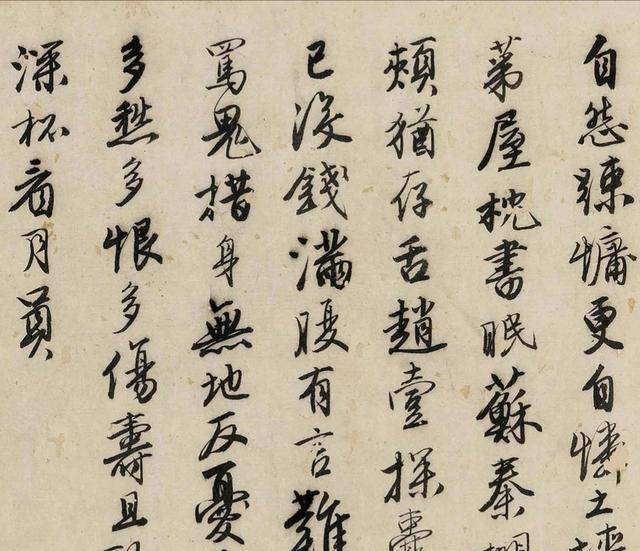 自怨疎慵更自憐土
茅屋枕書眠蘇秦
頰猶存舌趙壹探囊
已沒錢滿腹有言難
罵鬼措身無地反憂
多愁多恨多傷壽且
深杯看月員